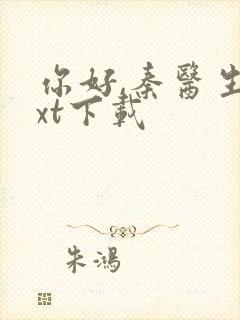 你好,秦醫生
xt下載
朱鴻